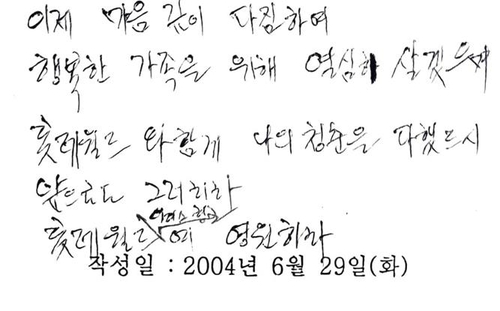 이제 마음 깊이 다짐하여
행복한 가족을 위해 열심히 살겠으며
훗레월드 와 함게 나의 청춘을 다했드시
앞으로도 그러하리라
훗레월드 여 영원하라
작성일 : 2004년 6월 29일(화)